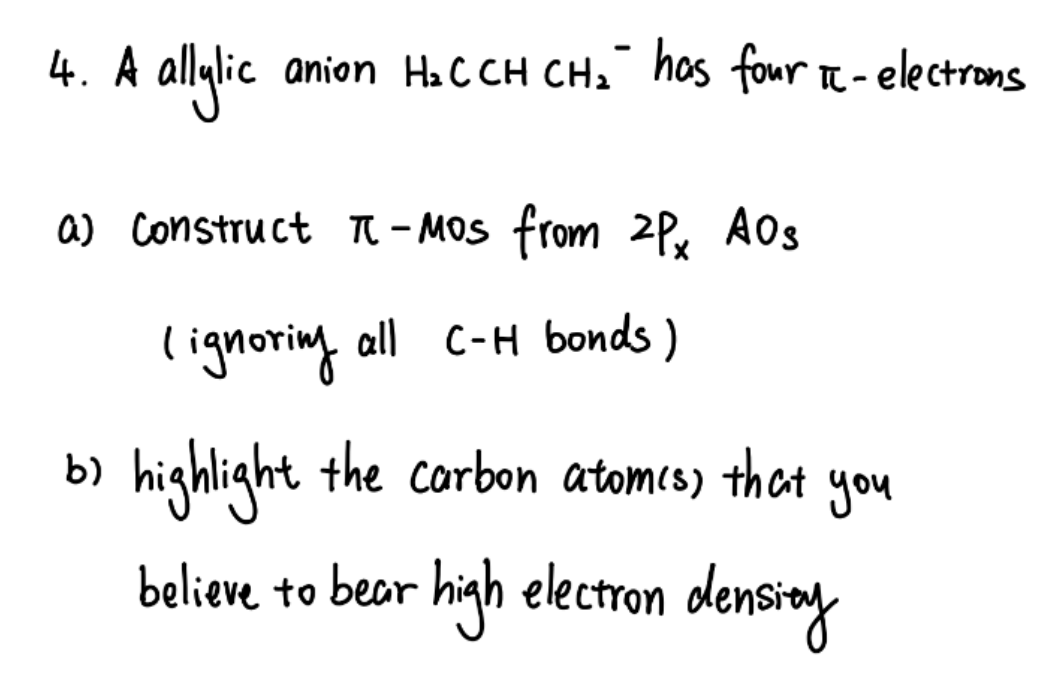 4. A allylic anion H₂CCHCH₂⁻ has four π-electrons
a) Construct π-MOs from 2Pₓ AOs
(ignoring all C-H bonds)
b) highlight the carbon atom(s) that you
believe to bear high electron density